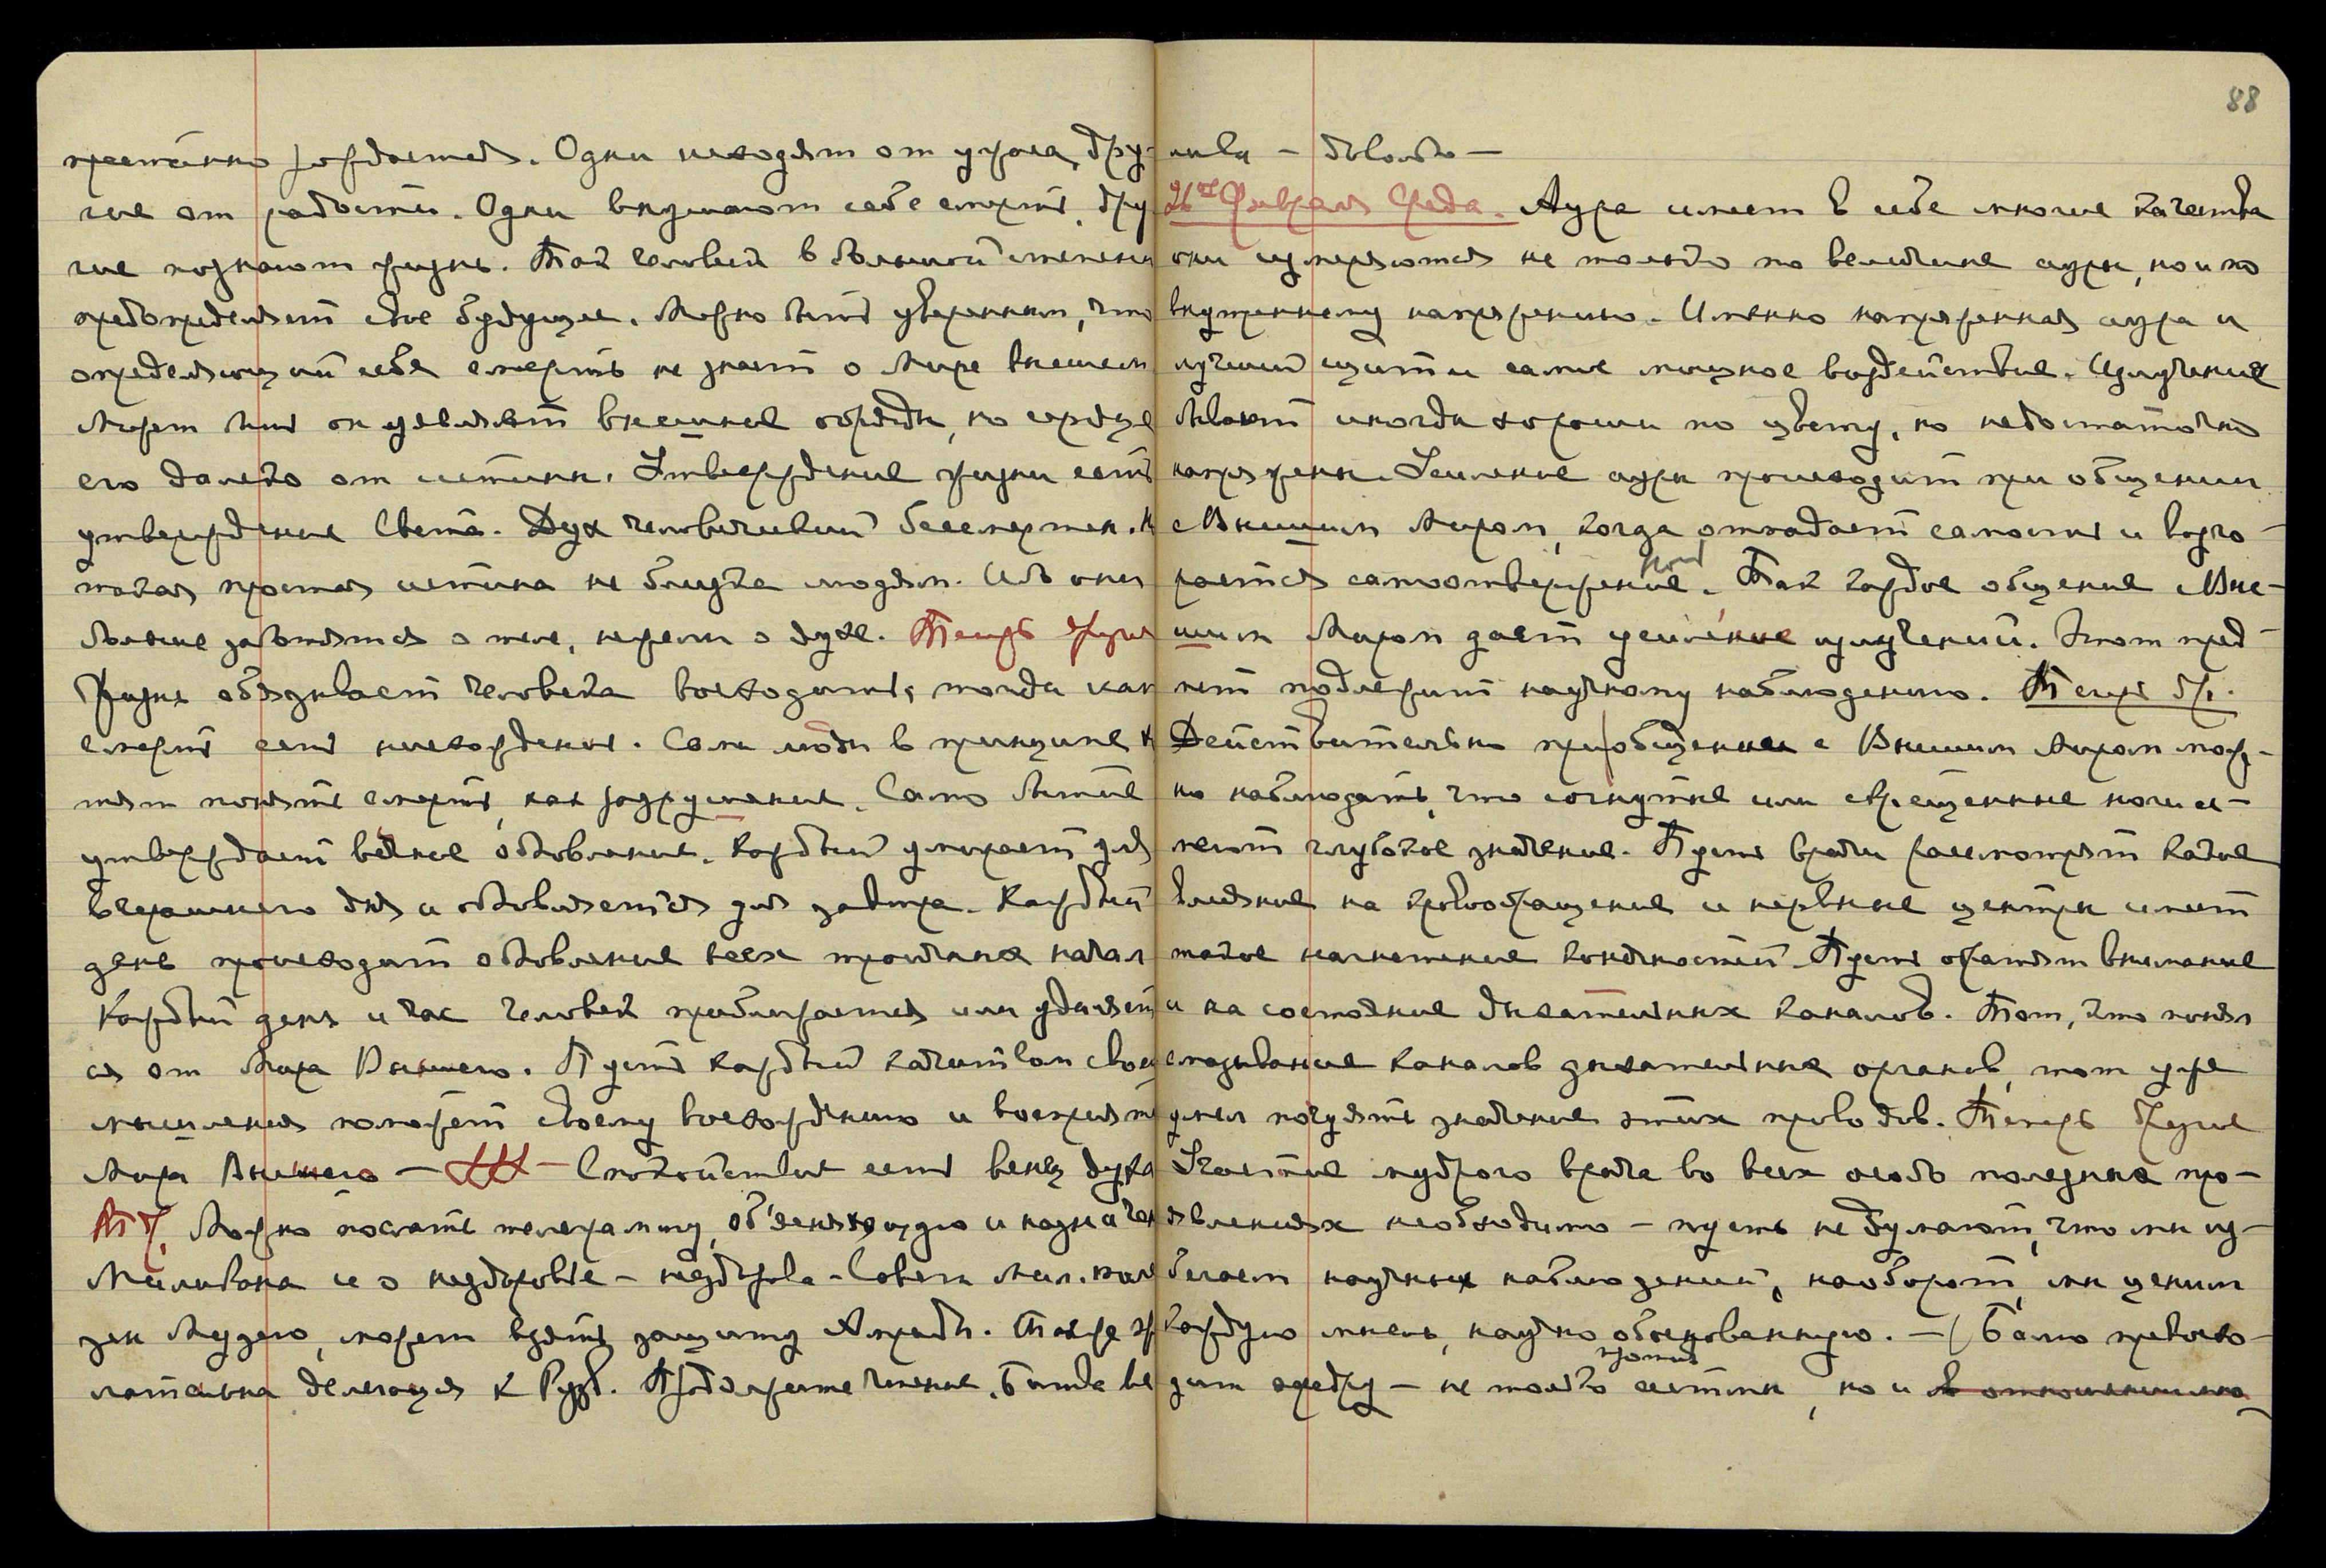 престанно рождается. Одни исходят от ужаса, дру-
гие от радости. Одни внушают себе смерть, дру
гие познают жизнь. Так человек в большой степени
предопределяет свое будущее. Можно быть уверенным, что
определяющий себе смерть не знает о Мире Высшем
Может быть он уявляет внешние обряды, но сердце
его далеко от истины. Утверждение жизни есть
утверждение Света. Дух человеческий бессмертен. Н
такая простая истина не близка людям. Ибо они
больше заботятся о теле, нежели о духе. Теперь другое
Жизнь обязывает человека восходить, тогда как
смерть есть нисхождение. Сами люди в принципе
понятие смерти, как разрушение. Само бытие
утверждает вечное обновление. Каждый умирает для
вчерашнего дня и обновляется для завтра. Каждый
день происходит обновление всех троичных начал
Каждый день и час человек приближается или удаляет
ся от Мира Высшего. Пусть каждый качеством своего
мышления поможет своему восхождению и восприятию
Мира Высшего — Спокойствие есть венец духа
Т. Др. Можно послать телеграмму,
о нездоровье
Музею, может взять защиту Также
делегация к Рузв. Продолжите чтение.
88
— довольно —
26ое Февраля Среда. Аура имеет в себе многие качества
они измеряются не только по величине ауры, но и по
внутреннему напряжению. Именно напряженная аура и
лучший щит и самое мощное воздействие. Излучения
бывают иногда хороши по цвету, но недостаточно
напряжены. Усиление ауры происходит при общении
с Высшим Миром, когда отпадает самость и возго-
рается самоотвержение. Так каждое общение с Выс-
шим Миром дает усиление излучений. Этот пред-
мет подлежит научному наблюдению. Теперь др.
Действительно при общении с Высшим Миром мож-
но наблюдать, что согнутые или скрещенные ноги и-
меют глубокое значение. Пусть врачи рассмотрят какое
влияние на кровообращение и нервные центры имеет
такое нагнетение конечностей. Пусть обратят внимание
и на состояние дыхательных каналов. Тот, кто понял
смазывание каналов дыхательных органов, тот уже
умел почуять значение этих проводов. Теперь другое
Участие мудрого врача во всех особо полезных про-
явлениях необходимо — пусть не думают, что мы из-
бегаем научных наблюдений, наоборот, мы ценим
каждую мысль, научно обоснованную. —
не только но и в отношении